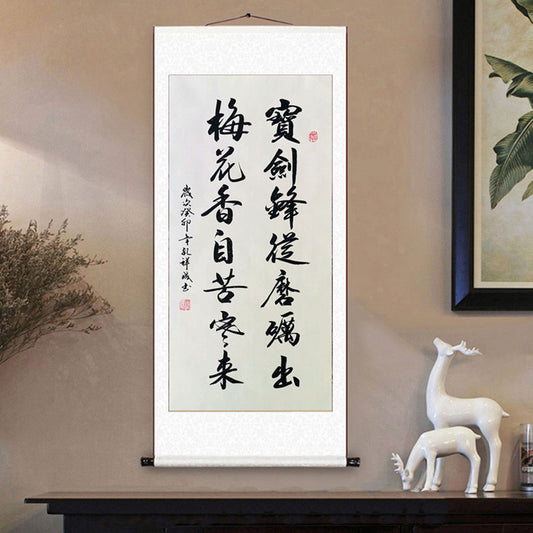 寶劍鋒從磨礪出
梅花香自苦寒来
歲次癸卯年孔祥成书